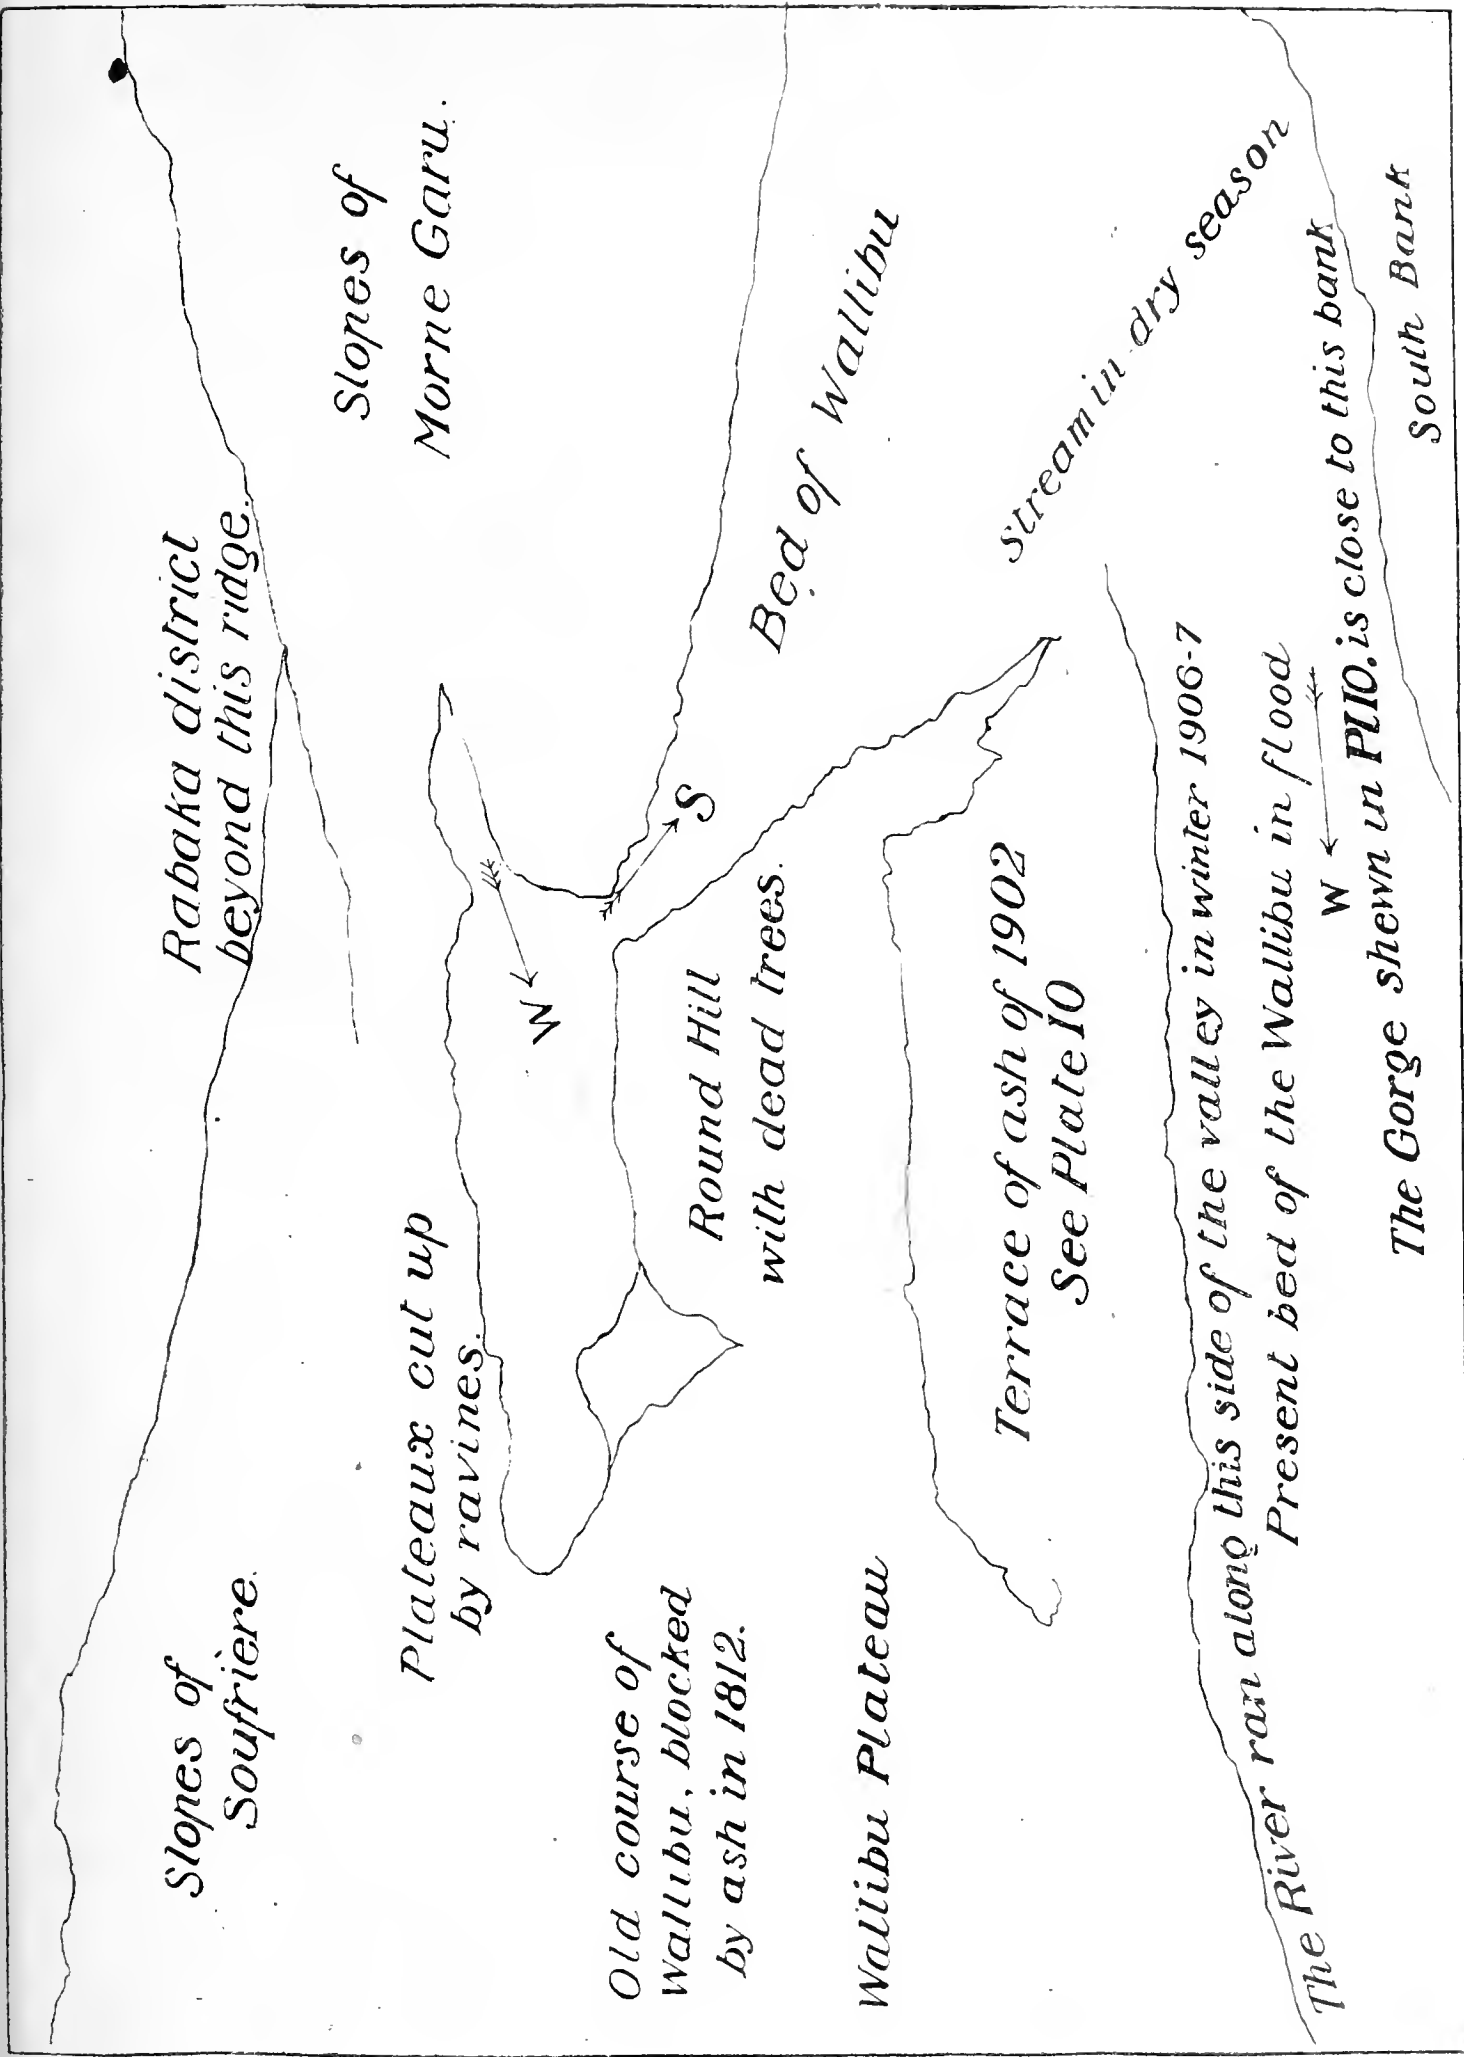 Slopes of
Soufrière.
Rabaka district
beyond this ridge.
Slopes of
Morne Garu.
Plateaux cut up
by ravines.
W
S
Old course of
Wallibu, blocked
by ash in 1812.
Round Hill
with dead trees.
Bed of Wallibu
Wallibu Plateau
Terrace of ash of 1902
See Plate 10
Stream in dry season
The River ran along this side of the valley in winter 1906-7
Present bed of the Wallibu in flood
W
The Gorge shewn in Pl10. is close to this bank
South Bank